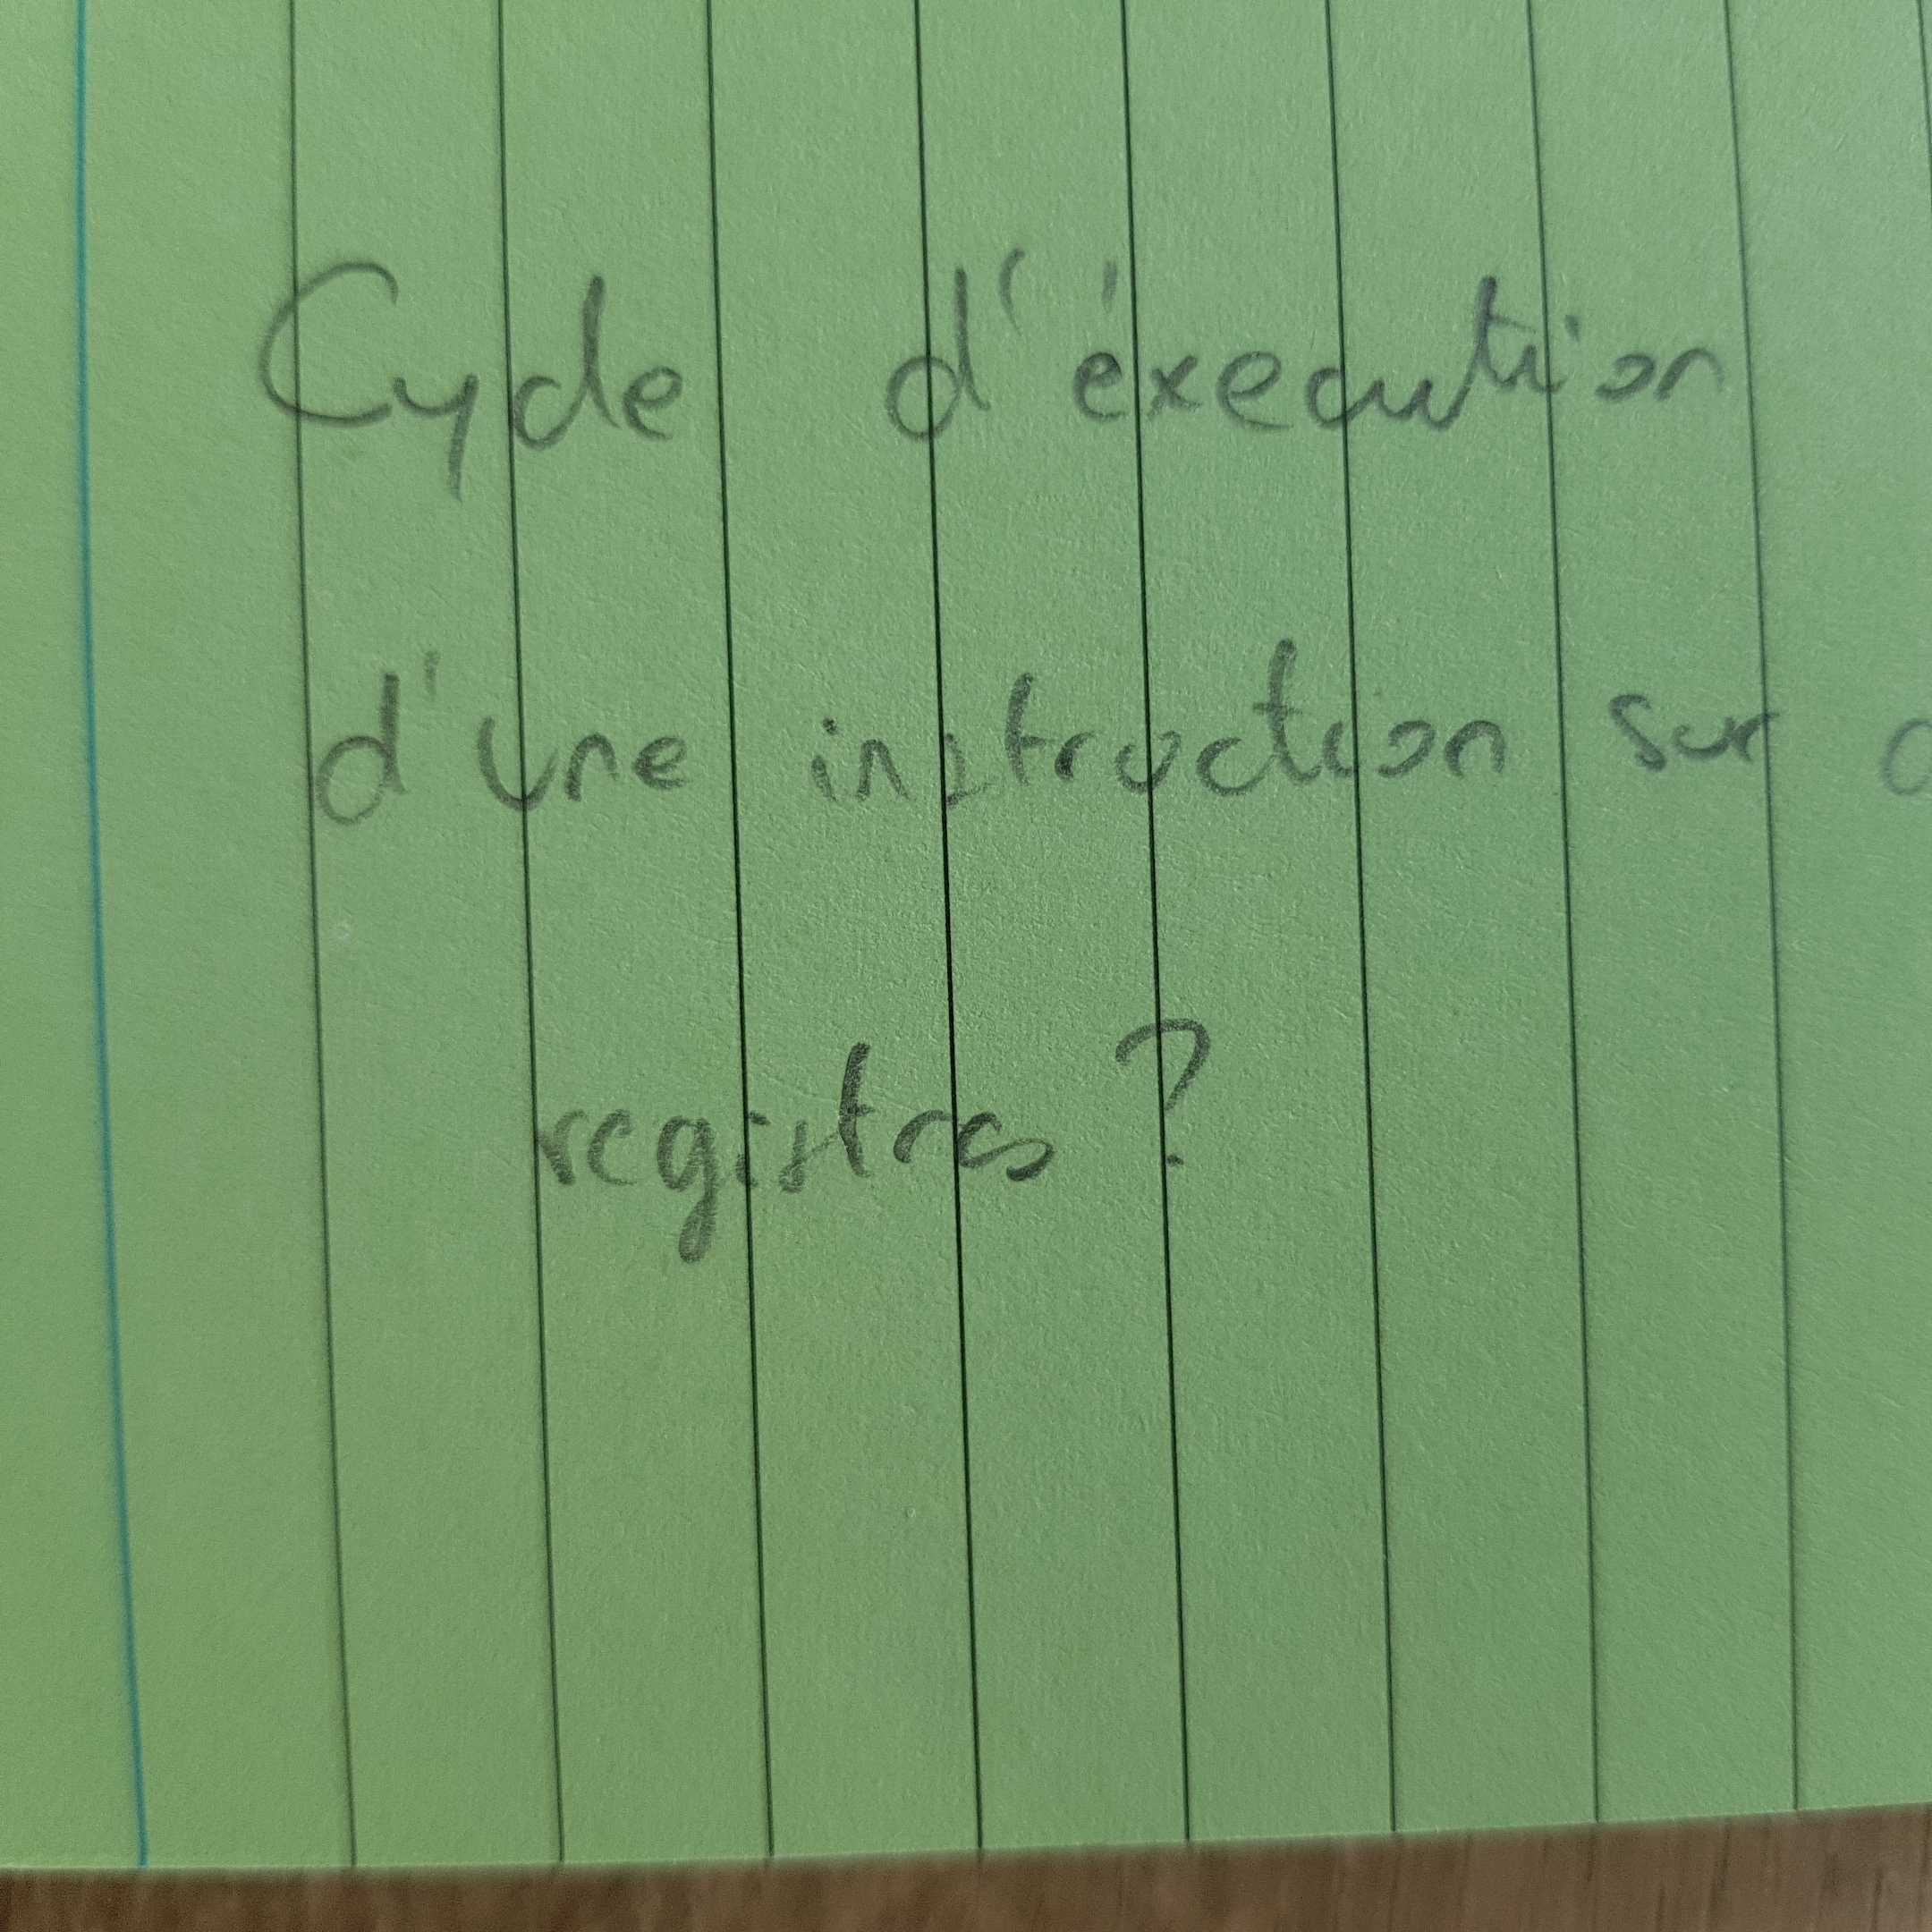 Cycle d'éxecution
d'une instruction sur
registres ?